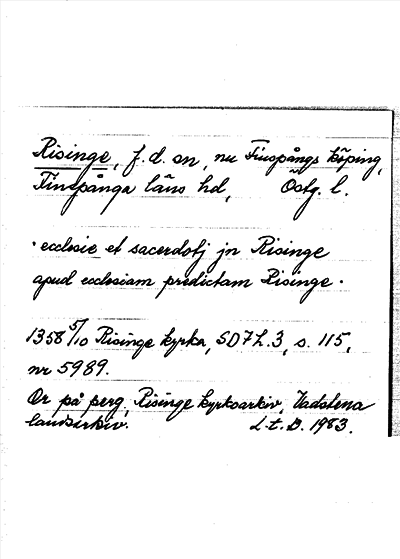 Risinge, f.d. sn, nu Finspångs köping,
Finspånga läns hd, Östg. l.
· ecclesie et sacerdotj jn Risinge
apud ecclesiam predictam Risinge ·
1358 5/10 Risinge kyrka, SD 7 h. 3, s. 115,
nr 5989.
Or på perg, Risinge kyrkoarkiv, Vadstena
landsarkiv. L. t. D. 1983.